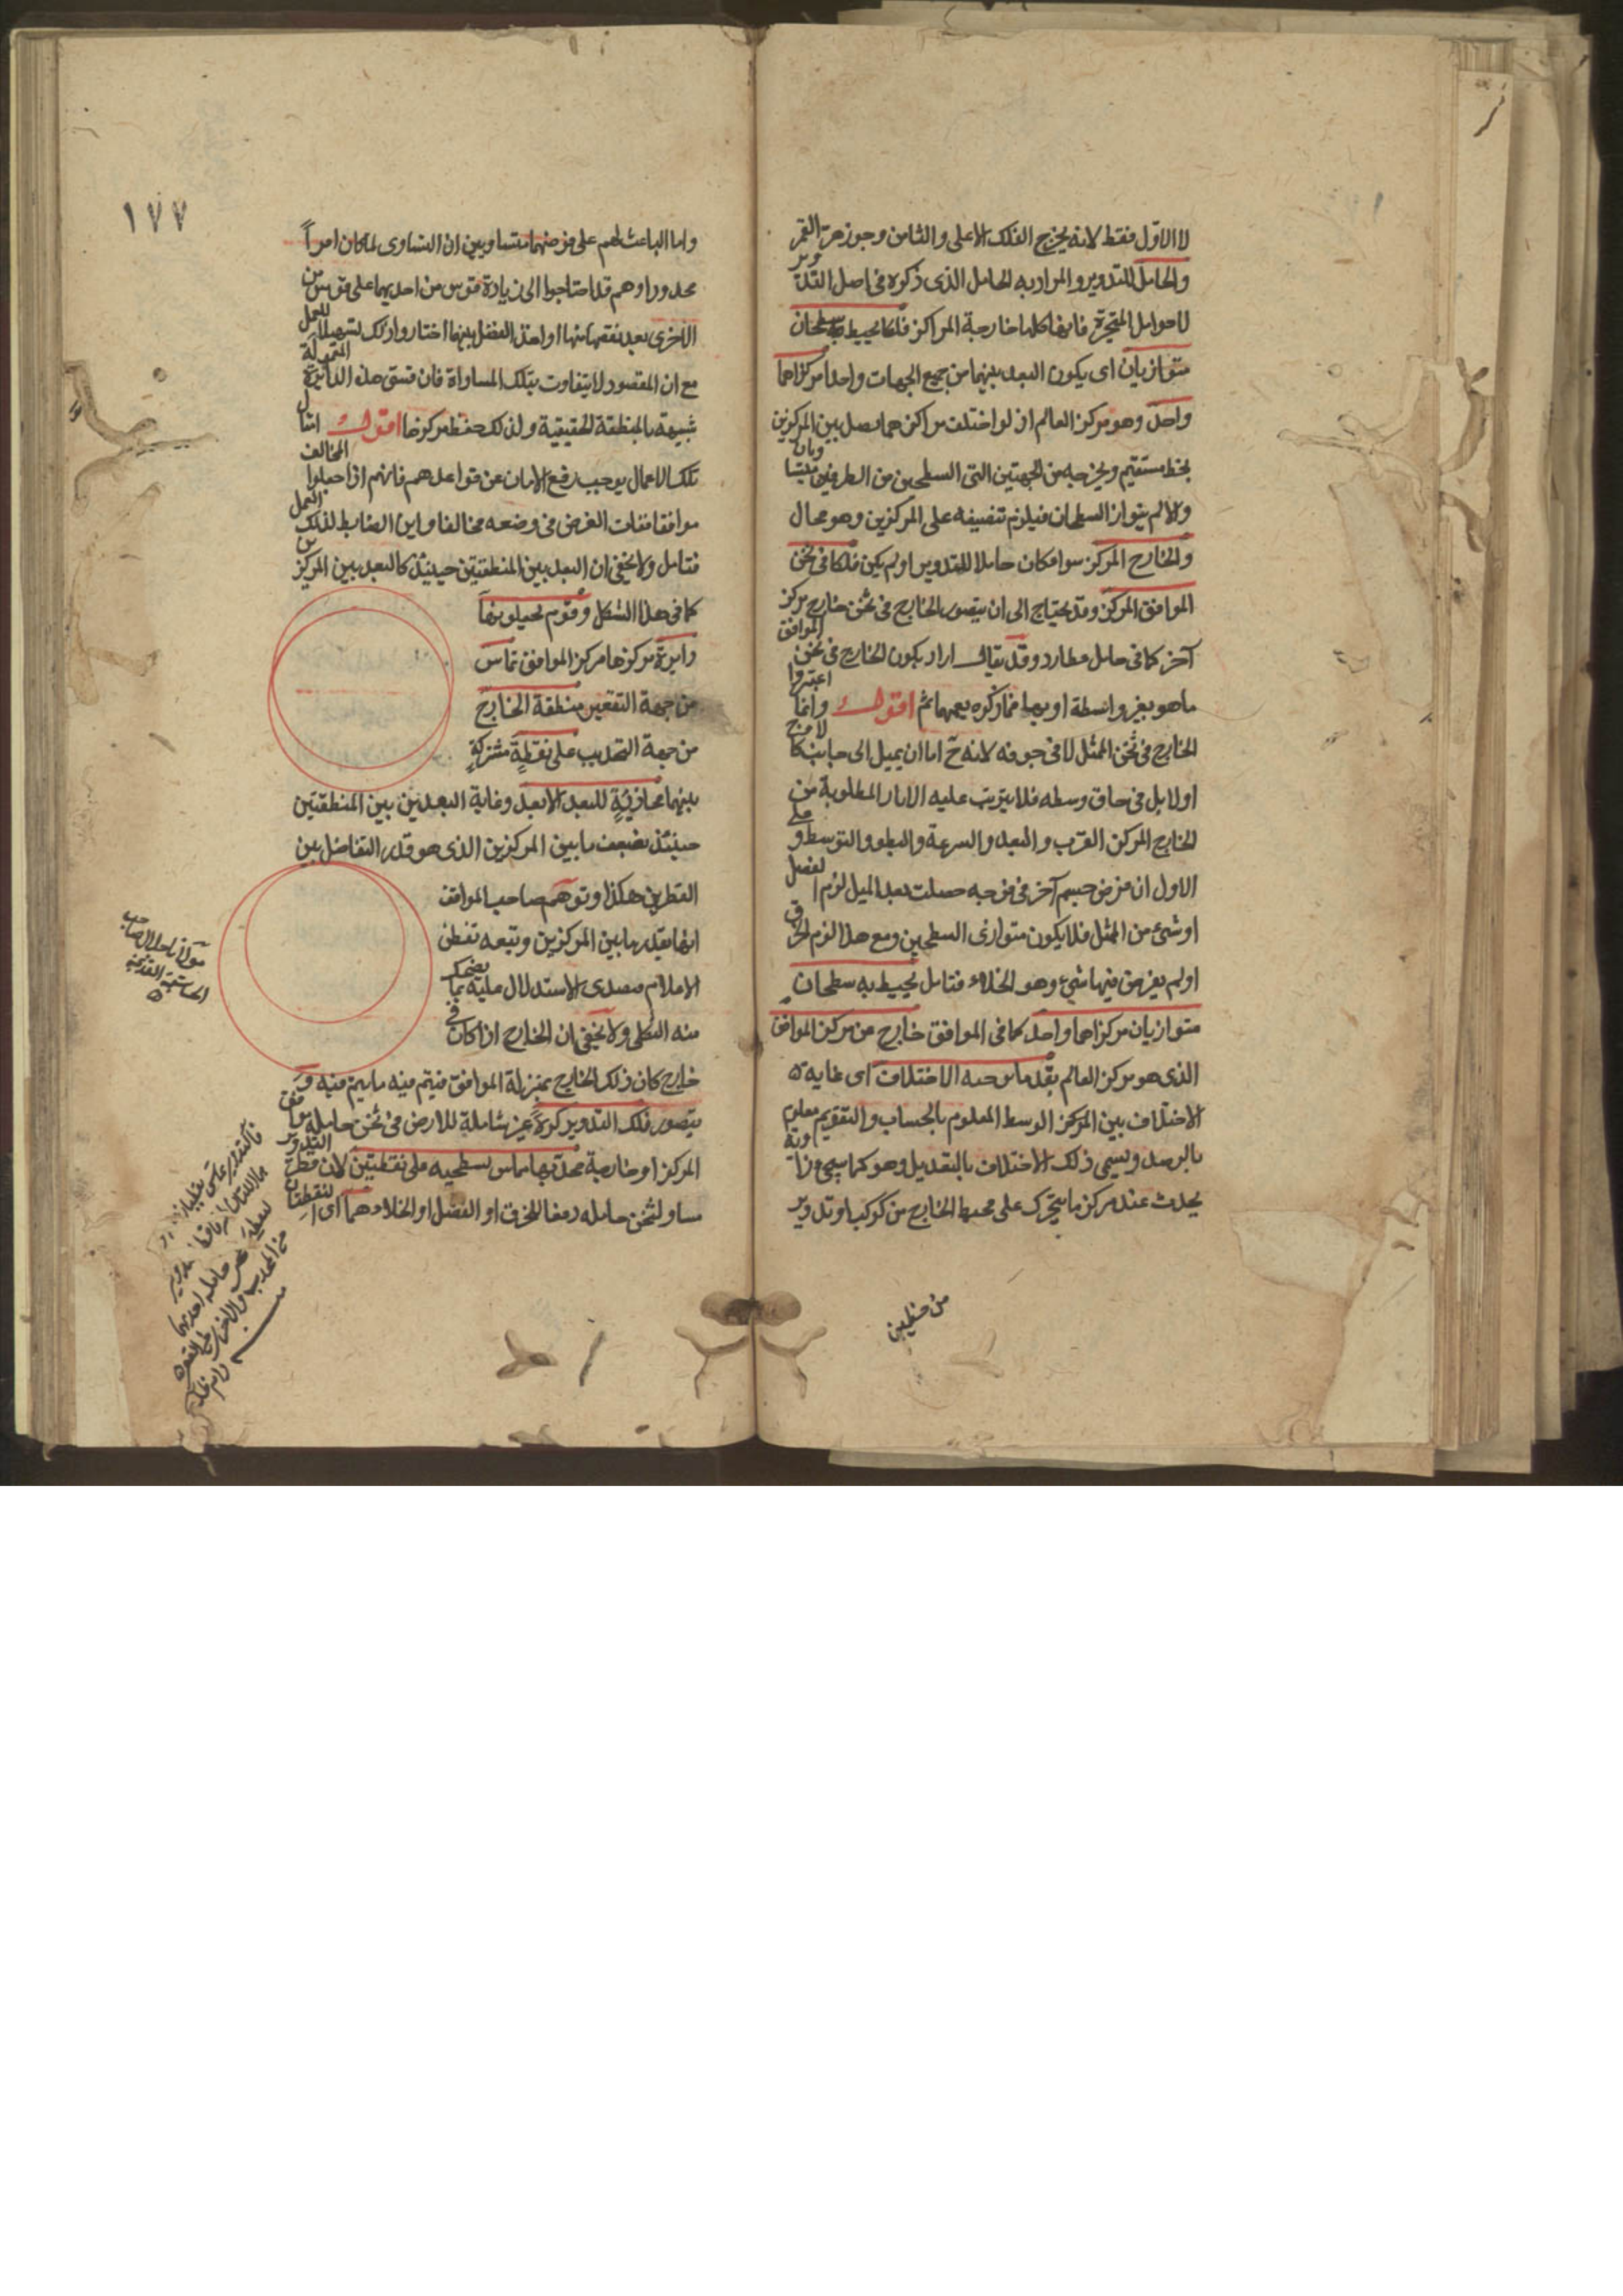 لا الاوّل فقط لانه يخرج الفلك الاعلى والثامن وجوزهرة القمر
والحامل للتدوير والمراد به الحامل الذى ذكره فى اصل التدوير
لا حوامل المتحيرة فانها كلها خارجة المراكز فلكا يحيط به سطحان
متوازيان اى يكون البعد بينهما من جميع الجهات واحدا مركزاهما
واحد وهو مركز العالم اذ لو اختلف مراكزهما نصل بين المركزين
بخط مستقيم ونخرجه من الجهتين الى السطحين من الطرفين متساويان
والا لم يتواز السطحان فيلزم تنصيفه على المركزين وهو محال
والخارج المركز سواء كان حاملا للتدوير او لم يكن فلكا فى ثخن
الموافق المركز وقد يحتاج الى ان يتصور الخارج فى ثخن خارج مركز
آخر كما فى حامل عطارد وقد يقال اراد بكون الخارج فى ثخن الموافق
ما هو بغير واسطة او بها فما ذكره يعمهما ثم اقول وانما اعتبروا
الخارج فى ثخن الممثل لا فى جوفه لانه ح اما ان يميل الى جانب كا
اولا بل فى حاق وسطه فلا يترتب عليه الاثار المطلوبة من
الخارج المركز القرب والبعد والسرعة والبطو والتوسط وعلى
الاول ان فرض جسم آخر فى فرجه حصلت بعد الميل لزم الفصل
او شئ من الممثل فلا يكون متوازى السطحين ومع هذا لزم الخرق
او لم يفرض فيها شئ وهو الخلاء فتامل يحيط به سطحان
متوازيان مركزاهما واحد كما فى الموافق خارج عن مركز الموافق
الذى هو مركز العالم بقدر ما يوجبه الاختلاف اى غاية
الاختلاف بين المركز الوسط المعلوم بالحساب والتقويم معلوم
بالرصد ويسمى ذلك الاختلاف بالتعديل وهو كما سيجئ زاوية
يحدث عند مركز ما يتحرك على محيط الخارج من كوكب او تدوير
من خطين
١٧٧
واما الباعث لهم على فرضهما متساويين ان التساوى لما كان امراً
محدودا وهم قد احتاجوا الى زيادة قوس من احديهما على قوس من
الاخرى بعد نقصها منها او اخذ الفضل بينهما اختاروا ذلك تسهيلا للعمل
مع ان المقصود لا يتفاوت بتلك المساواة فان قسى هذه الدائرة
شبيهة بالمنطقة الحقيقية ولذلك حفظ مركزها اقول
تلك الاعمال يوجب رفع الامان عن قواعدهم فانهم اذا جعلوا المخالف
موافقا فات الغرض فى وضعه مخالفا واين الضابط لذلك العمل
فتامل ولا يخفى ان البعد بين المنطقتين حينئذ كالبعد بين المركزين
كما فى هذا الشكل وقوم
دايرة مركزها مركز الموافق تماس
من جهة التقعير منطقة الخارج
من جهة التحديب على نقطة مشتركة
بينهما محاذية للبعد الابعد وغاية البعدين بين المنطقتين
حينئذ بضعف ما بين المركزين الذى هو قدر التفاضل بين
القطرين هكذا وتوهم صاحب المواقف
انها بقدر ما بين المركزين وتبعه تفطن
الاعلام فتصدى الاستدلال عليه بما يضحك
منه الثكلى ولا يخفى ان الخارج اذا كان فى
خارج كان ذلك الخارج بمنزلة الموافق فيتم فيه ما يتم فيه
يتصور فلك التدوير كرة غير شاملة للارض فى ثخن حامله موافق
المركز او خارجه محدبها يماس بسطحيه على نقطتين لان قطر التدوير
مساو لثخن حامله دفعا للخرق او الفصل او الخلاء هما اى النقطتان